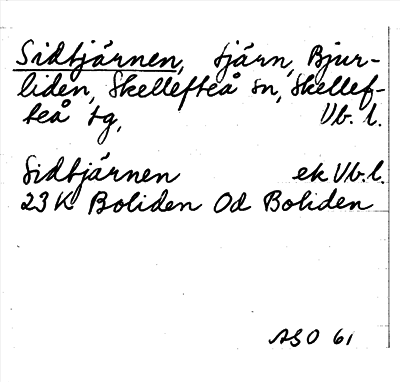 Sidtjärnen, tjärn, Bjur-
liden, Skellefteå sn, Skellef-
teå tg, Vb. l.
Sidtjärnen ek Vb. l.
23 K Boliden Od Boliden
ASO 61